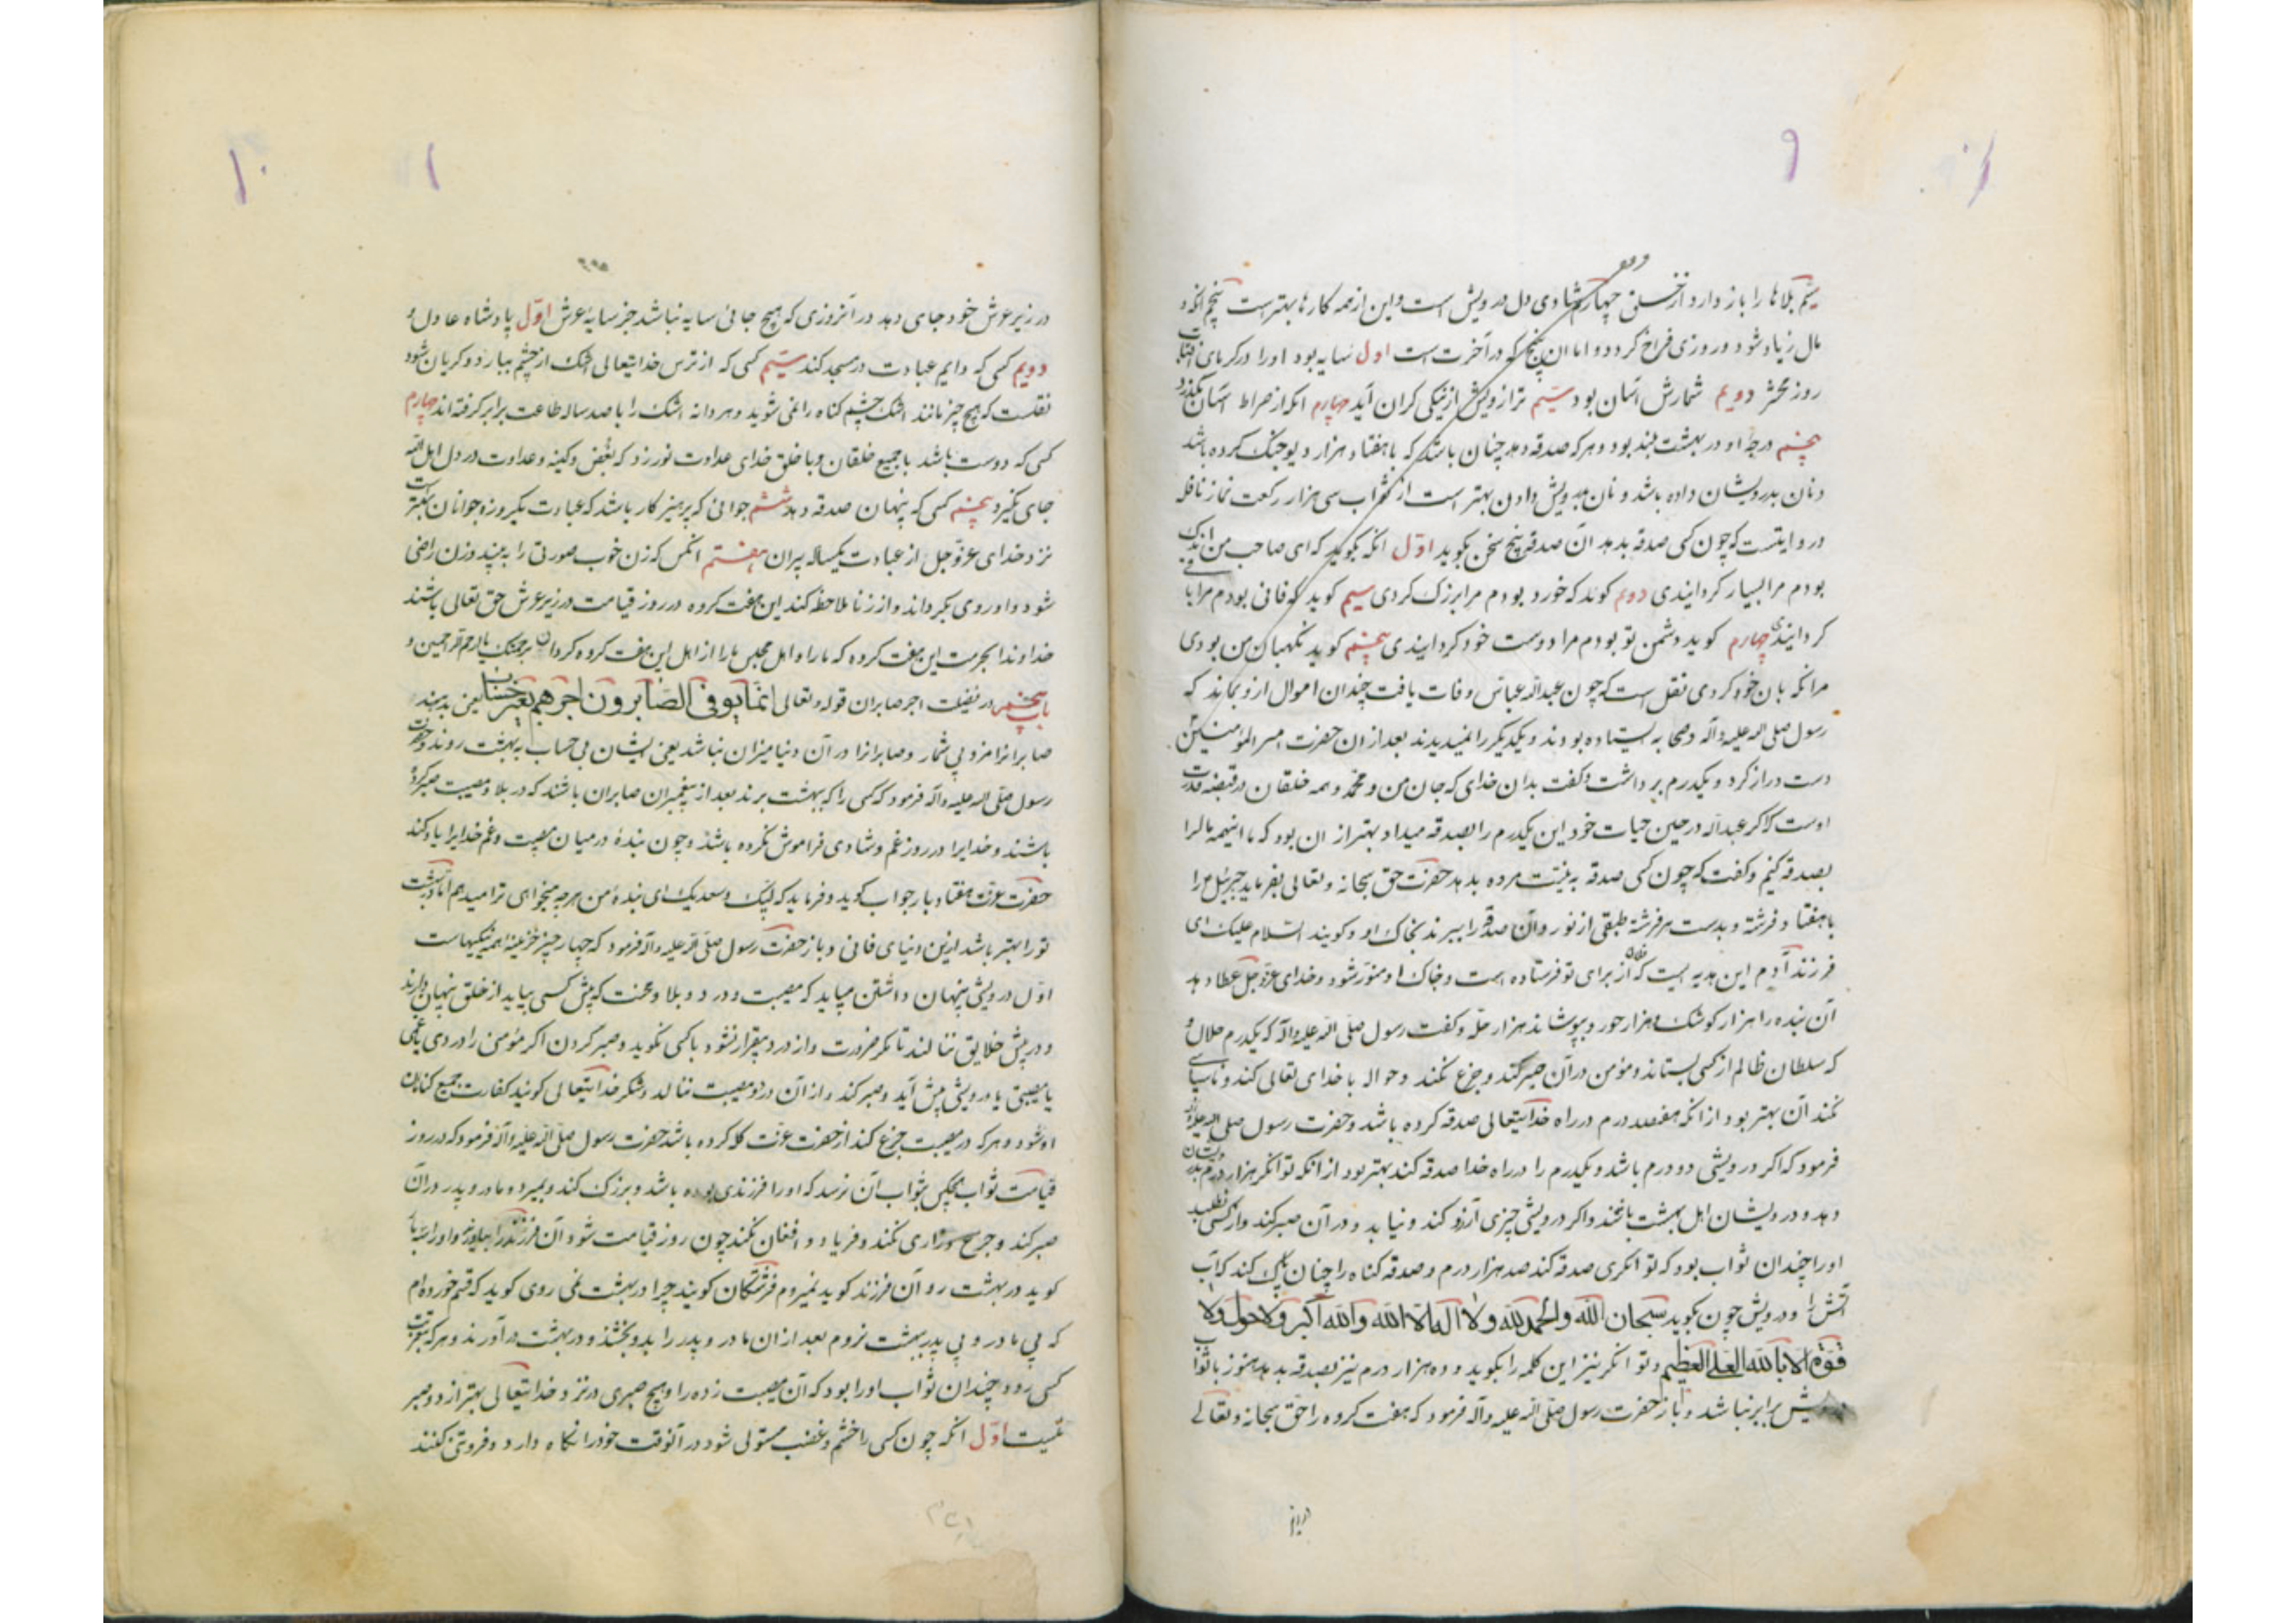 ۹
سیم بلاها را باز دارد از خستن چهارم شادی دل درویش است و این از همه کارها بهتر است پنجم انکه در
مال زیاد شود و روزی فراخ کردد و اما ان پنج که در آخرت است اول سایه بود اورا در کرمای افتاب
روز محشر دویم شمارش اسان بود سیم ترازویش از نیکی کران آید چهارم انکه از صراط اسان بکذرد
پنجم درجهٔ او در بهشت بلند بود و هرکه صدقه دهد چنان باشد که با هفتاد هزار دیو جنک کرده باشد
و نان بدرویشان داده باشد و نان بدرویش دادن بهتر است از ثواب سی هزار رکعت نماز نافله
در روایتست که چون کسی صدقه بدهد آن صدقه پنج سخن بکوید اول انکه بکوید که ای صاحب من اندک
بودم مرا بسیار کردانیدی دویم کوید که خورد بودم مرا بزرک کردی سیم کوید که فانی بودم مرا باقی
کردانیدی چهارم کوید دشمن تو بودم مرا دوست خود کردانیدی پنجم کوید نکهبان من بودی
مرا نکه بان خود کردی نقل است که چون عبداله عباس وفات یافت چندان اموال ازو بماند که
رسول صلی اله علیه واله و صحابه ایستاده بودند و یکدیکر را نمیدیدند بعد از ان حضرت امیرالمؤمنین
دست دراز کرد و یکدرم برداشت و کفت بدان خدای که جان من و محمد و همه خلقان در قبضه قدرت
اوست که اکر عبداله در حین حیات خود این یکدرم را بصدقه میداد بهتر از ان بود که ما اینهمه مال را
بصدقه کنیم و کفت که چون کسی صدقه به نیت مرده بدهد حضرت حق سبحانه و تعالی بفرماید جبرئیل را
با هفتاد فرشته و بدست هر فرشته طبقی از نور و آن صدقه را ببرند بخاک او و کویند السلام علیک ای
فرزند آدم این هدیه ایست که از برای تو فرستاده است و خاک او منور شود و خدای عز و جل عطا دهد
آن بنده را هزار کوشک و هزار حور و بپوشاند هزار حله و کفت رسول صلی اله علیه واله که یکدرم حلال و
که سلطان ظالم از کسی بستاند و مؤمن در آن صبر کند و جزع نکند و حواله با خدای تعالی کند و ناسپاسی
نکند آن بهتر بود از انکه هفتصد درم در راه خدایتعالی صدقه کرده باشد و حضرت رسول صلی اله علیه واله
فرمود که اکر درویشی دو درم باشد و یکدرم را در راه خدا صدقه کند بهتر بود از انکه توانکر هزار درم بدرویشان
دهد و درویشان اهل بهشت باشند و اکر درویشی چیزی آرزو کند و نیابد و در آن صبر کند و از کسی نطلبد
اورا چندان ثواب بود که توانکری صدقه کند صد هزار درم و صدقه کناه را چنان پاک کند که آب
آتش را و درویش چون بکوید سبحان الله والحمد لله ولا اله الا الله والله اکبر ولا حول ولا
قوة الا بالله العلی العظیم و توانکر نیز این کلمه را بکوید و ده هزار درم نیز بصدقه بدهد هنوز با ثواب
درویش برابر نباشد و باز حضرت رسول صلی اله علیه واله فرمود که هفت کروه را حق سبحانه و تعالی
در زیر
۱۰
در زیر عرش خود جای دهد در آنروزی که هیچ جائی سایه نباشد جز سایه عرش اول پادشاه عادل و
دویم کسی که دایم عبادت در مسجد کند سیم کسی که از ترس خدایتعالی اشک از چشم ببارد و کریان شود
نقلست که هیچ چیز مانند اشک چشم کناه را نمی شوید و هر دانه اشک را با صد ساله طاعت برابر کرفته اند چهارم
کسی که دوست باشد با جمیع خلقان و با خلق خدای عداوت نورزد که بغض و کینه و عداوت در دل اهل الله
جای نکیرد پنجم کسی که پنهان صدقه دهد ششم جوانی که پرهیز کار باشد که عبادت یکروزه جوانان بهتر است
نزد خدای عز و جل از عبادت یکساله پیران هفتم انکس که زن خوب صورتی را به بیند و زن راضی
شود و او روی بکرداند و از زنا ملاحظه کند این هفت کروه در روز قیامت در زیر عرش حق تعالی باشند
خداوندا بحرمت این هفت کروه که ما را و اهل مجلس ما را از اهل این هفت کروه کردان برحمتک یا ارحم الراحمین و
باب پنجم در فضیلت اجر صابران قوله تعالی انما یوفی الصابرون اجرهم بغیر حساب یعنی بدهند
صابرانرا مزد بی شمار و صابرانرا در آن دنیا میزان نباشد یعنی ایشان بی حساب به بهشت روند و حضرت
رسول صلی اله علیه واله فرمود که کسی را که ببهشت برند بعد از پیغمبران صابران باشند که در بلا و مصیبت صبر کرده
باشند و خدایرا در روز غم و شادی فراموش نکرده باشند و چون بندهٔ در میان مصیبت و غم خدایرا یاد کند
حضرت عزت هفتاد بار جواب کوید و فرماید که لبیک و سعدیک ای بندهٔ من هرچه میخواهی ترا میدهم اما در بهشت
تورا بهتر باشد ازین دنیای فانی و باز حضرت رسول صلی اله علیه واله فرمود که چهار چیز خزینه همه نیکیهاست
اول درویشی پنهان داشتن میباید که مصیبت و درد و بلا و محنت که پیش کسی بیاید از خلق پنهان دارند
و در پیش خلایق ننالند تا مکر ضرورت و از درد بیقرار نشود با کسی نکوید و صبر کردن اکر مؤمنی را دردی یا غمی
یا مصیبتی یا درویشی پیش آید و صبر کند و از آن درد و مصیبت ننالد و شکر خدایتعالی کویند کفارت جمیع کناهان
او شود و هرکه در مصیبت جزع کند از حضرت عزت کله کرده باشد حضرت رسول صلی اله علیه واله فرمود که در روز
قیامت ثواب هیچکس بثواب آن نرسد که اورا فرزندی بوده باشد و بزرک کند و بمیرد و مادر و پدر در آن
صبر کند و جزع و زاری نکند و فریاد و افغان نکند چون روز قیامت شود آن فرزند را بیاورند و اورا
کوید در بهشت رو آن فرزند کوید نمیروم فرشتکان کویند چرا در بهشت نمی روی کوید که قسم خورده ام
که بی مادر و بی پدر ببهشت نروم بعد از ان مادر و پدر را بدو بخشند و در بهشت در آورند و هرکه بتعزیت
کسی رود چندان ثواب اورا بود که آن مصیبت زده را و هیچ صبری در نزد خدایتعالی بهتر از دو صبر
نیست اول انکه چون کسی را خشم و غضب مستولی شود در آنوقت خود را نکاه دارد و فروتنی کنند